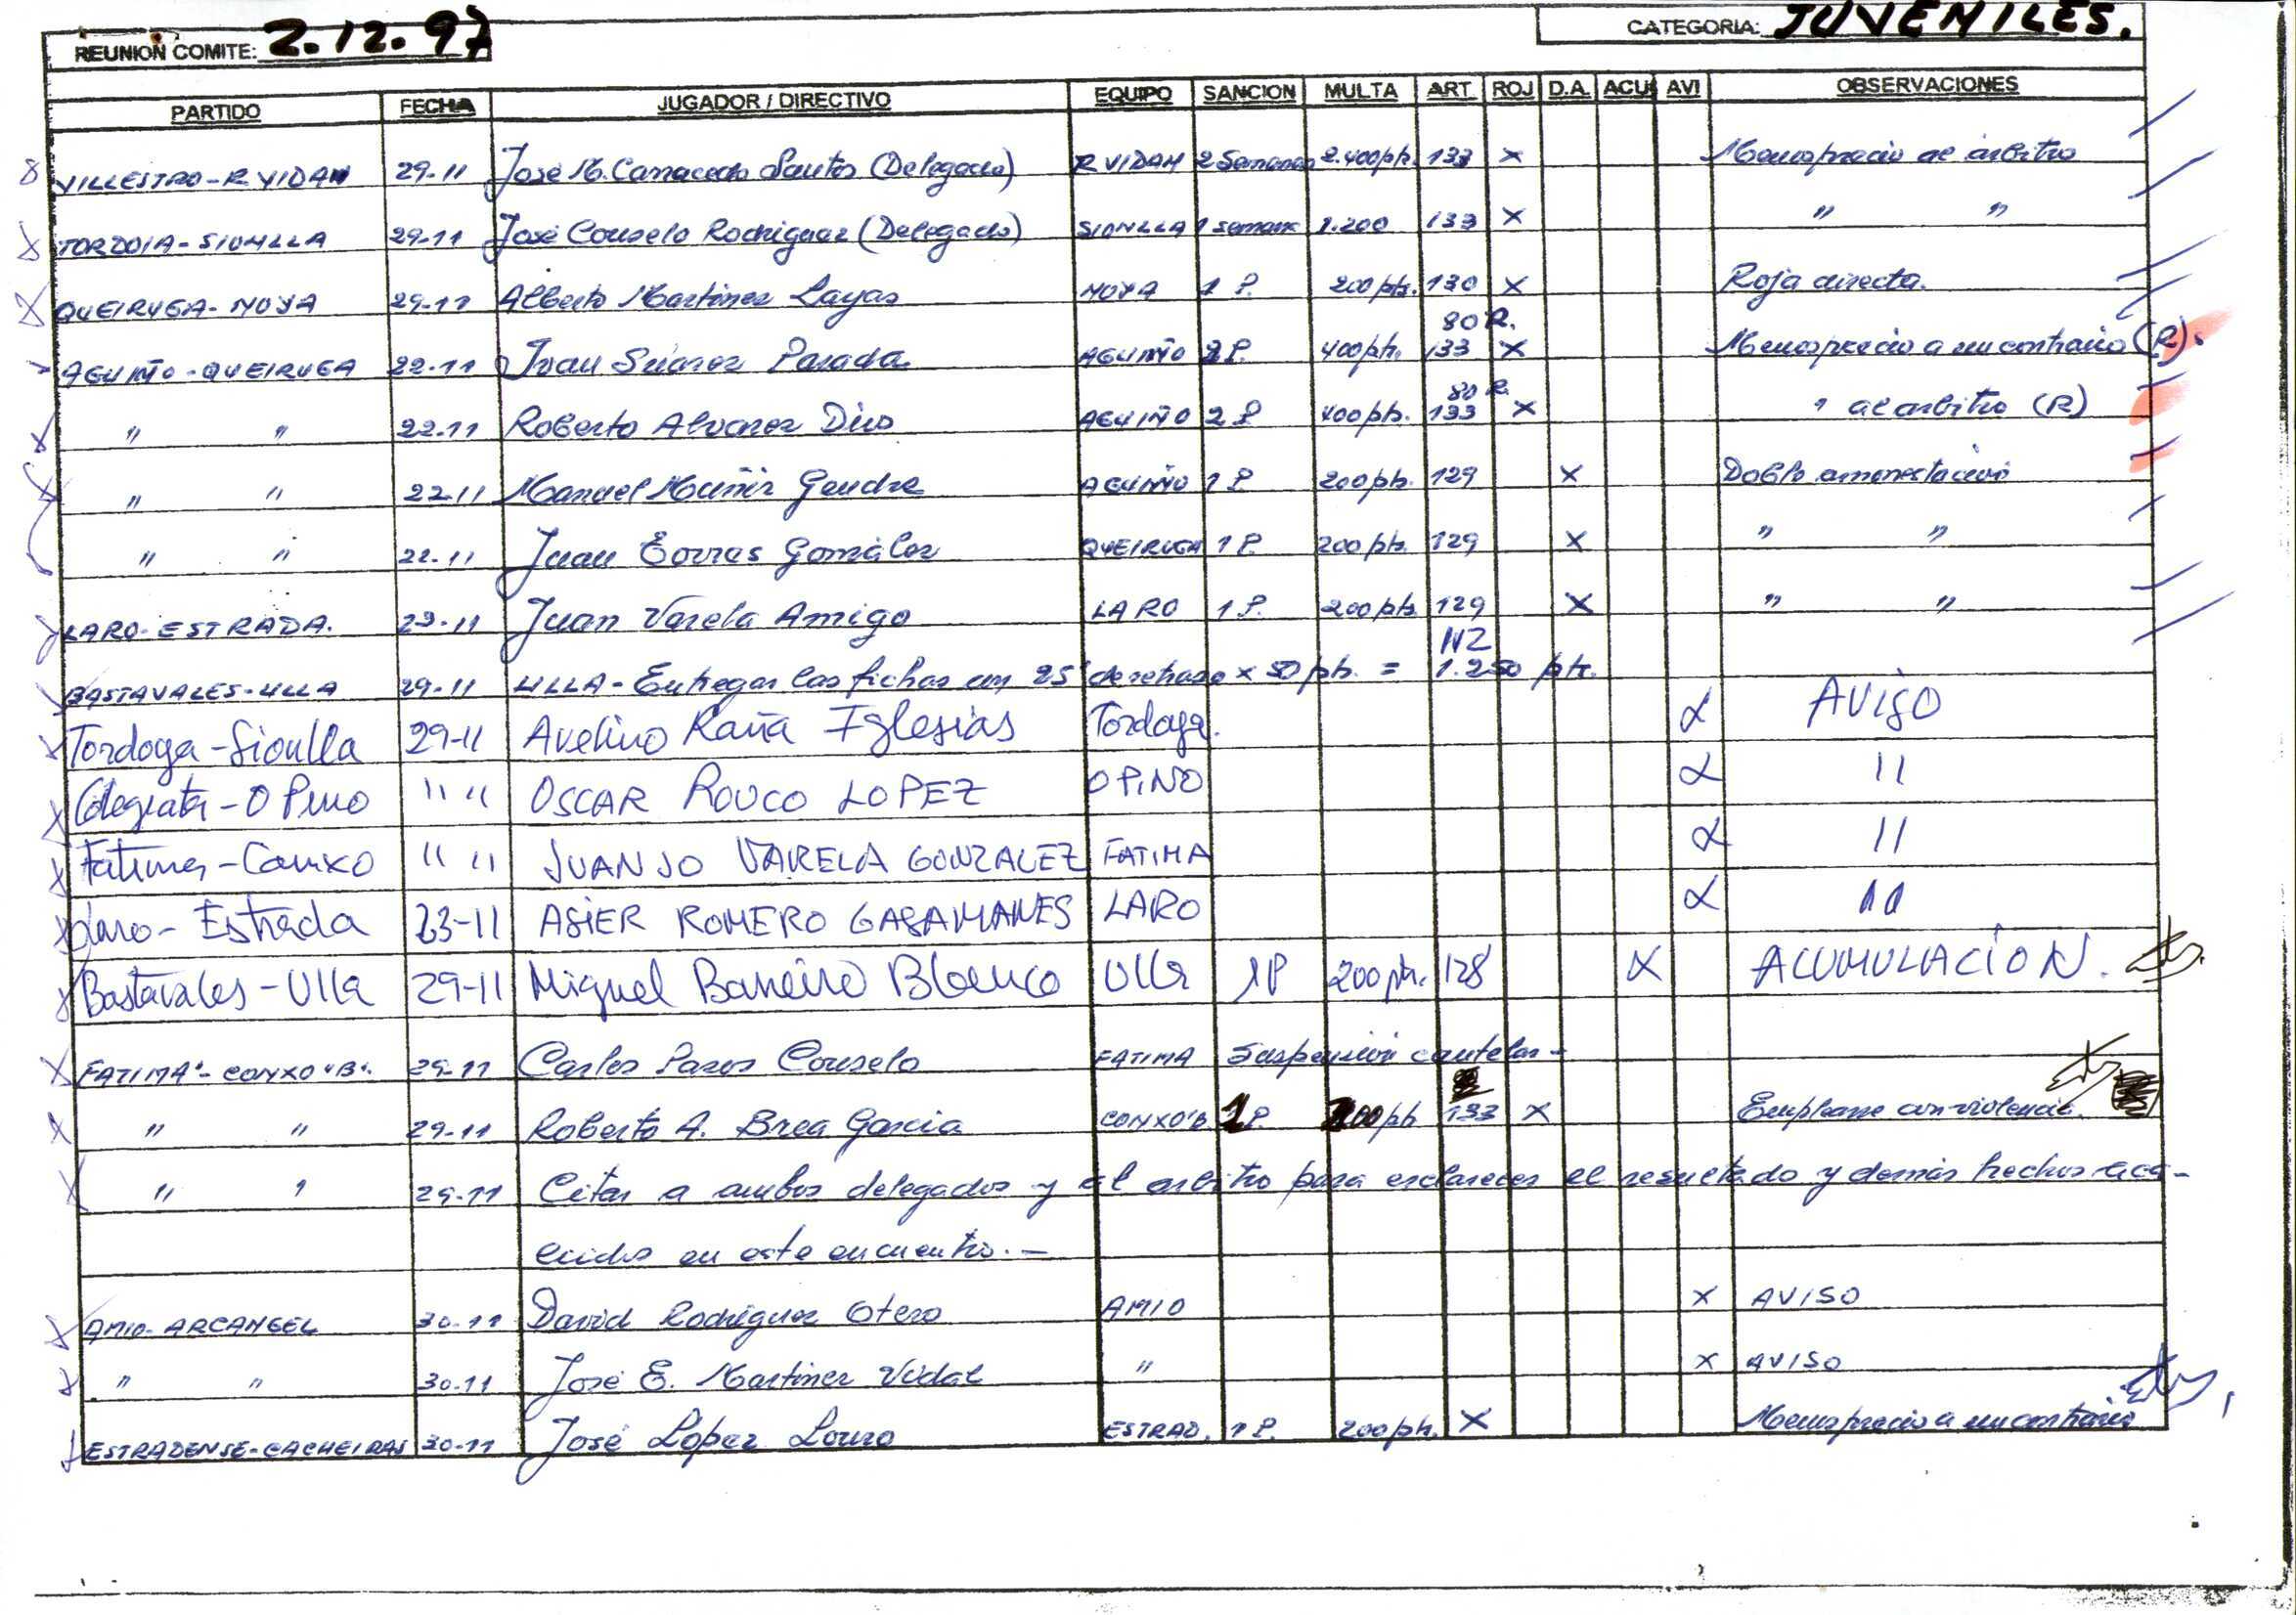 REUNION COMITE: 2.12.97 CATEGORIA: JUVENILES.
PARTIDO FECHA JUGADOR / DIRECTIVO EQUIPO SANCION MULTA ART. ROJ D.A. ACU AVI OBSERVACIONES
VILLESTRO-R VIDAN 29-11 José M. Carracedo Santos (Delegado) R VIDAN 2 Semanas 2.400 pts. 133 x Menosprecio al árbitro
TORDOIA-SIONLLA 29-11 José Couselo Rodríguez (Delegado) SIONLLA 1 semana 1.200 133 x " "
QUEIRUGA-NOYA 29-11 Alberto Martínez Layas NOYA 1 P. 200 pts. 130 x Roja directa.
80 R.
AGUIÑO-QUEIRUGA 22-11 Juan Suárez Parada AGUIÑO 2 P. 400 pts. 133 x Menosprecio a un contrario (R).
80 R.
" " 22.11 Roberto Alvarez Dios AGUIÑO 2 P 400 pts. 133 x " al arbitro (R)
" " 22.11 Manuel Muñiz AGUIÑO 1 P 200 pts. 129 x Doble amonestación
" " 22.11 Juan Torres González QUEIRUGA 1 P. 200 pts. 129 x " "
LARO-ESTRADA. 23-11 Juan Varela Amigo LARO 1 P. 200 pts 129 x " "
112
BASTAVALES-ULLA 29-11 ULLA - Entregar las fichas con 25' de retraso x 50 pts. = 1.250 pts.
Tordoya-Sionlla 29-11 Avelino Raña Iglesias Tordoya. x AVISO
Colegiata-O Pino " " OSCAR ROUCO LOPEZ O PINO x "
Fatima-Conxo " " JUANJO VARELA GONZALEZ FATIMA x "
Laro-Estrada 23-11 ASIER ROMERO LARO x "
Bastavales-Ulla 29-11 Miguel Barreiro Blanco Ulla 1P 200 pts. 128 x ACUMULACION.
FATIMA-CONXO "B". 29-11 Carlos Pazos Couselo FATIMA Suspensión cautelar -
" " 29-11 Roberto A. Brea García CONXO "B 1 P. 200 pts 133 x Emplearse con violencia.
" " 29-11 Citar a ambos delegados y al arbitro para esclarecer el resultado y demás hechos aca-
ecidos en este encuentro. -
AMIO-ARCANGEL 30-11 David Rodríguez Otero AMIO x AVISO
" " 30-11 José E. Martínez Vidal " x AVISO
ESTRADENSE-CACHEIRAS 30-11 José López Louro ESTRAD. 1 P. 200 pts. x Menosprecio a un contrario